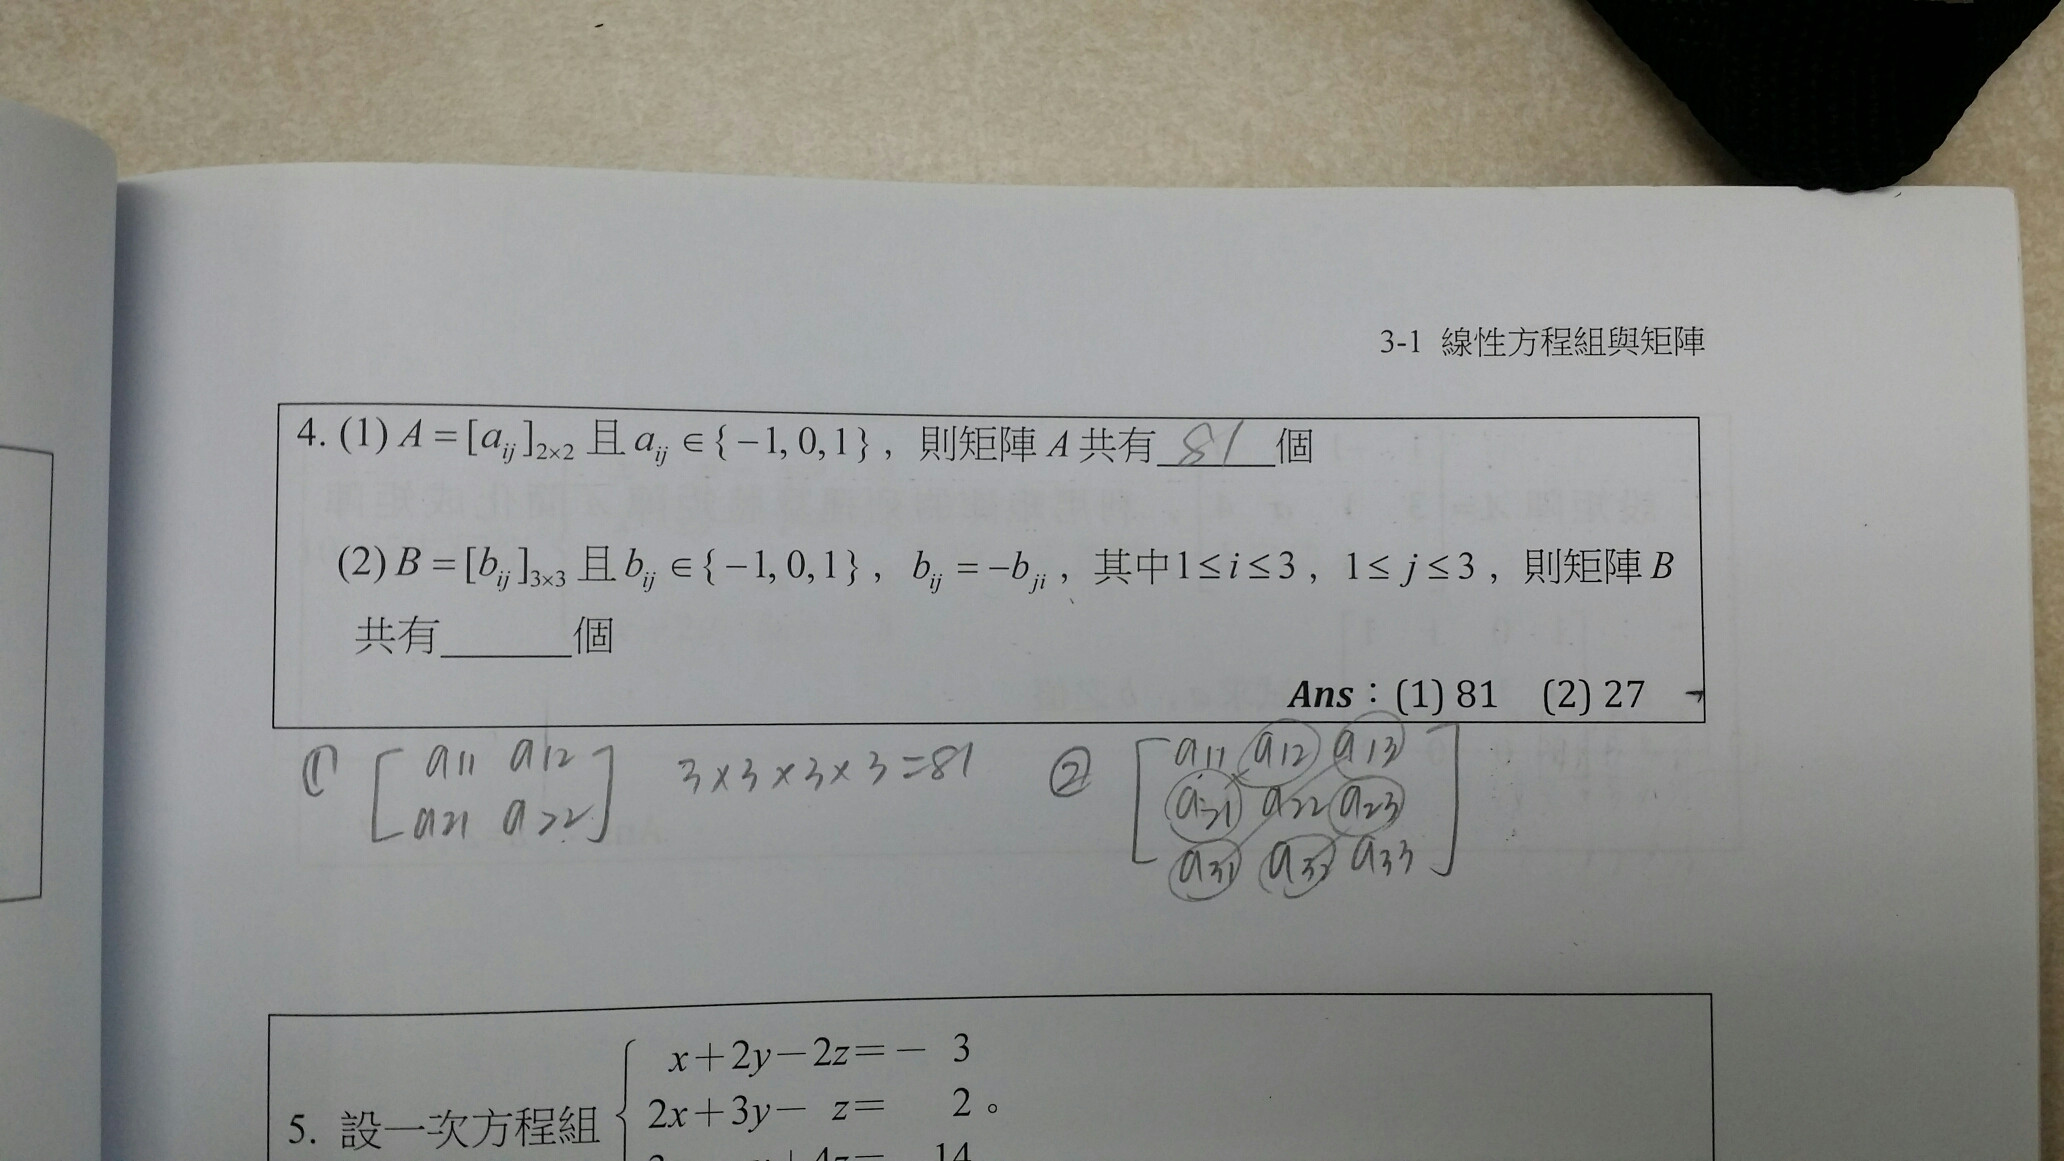 3-1 線性方程組與矩陣
4. (1) A = [a_{ij}]_{2×2} 且 a_{ij} ∈ {−1, 0, 1}，則矩陣 A 共有 81 個
(2) B = [b_{ij}]_{3×3} 且 b_{ij} ∈ {−1, 0, 1}，b_{ij} = −b_{ji}，其中 1 ≤ i ≤ 3，1 ≤ j ≤ 3，則矩陣 B
共有______個
Ans：(1) 81 (2) 27
① [ a11 a12
a21 a22 ] 3×3×3×3=81
② [ a11 a12 a13
a21 a22 a23
a31 a32 a33 ]
5. 設一次方程組
x+2y−2z=− 3
2x+3y− z= 2。